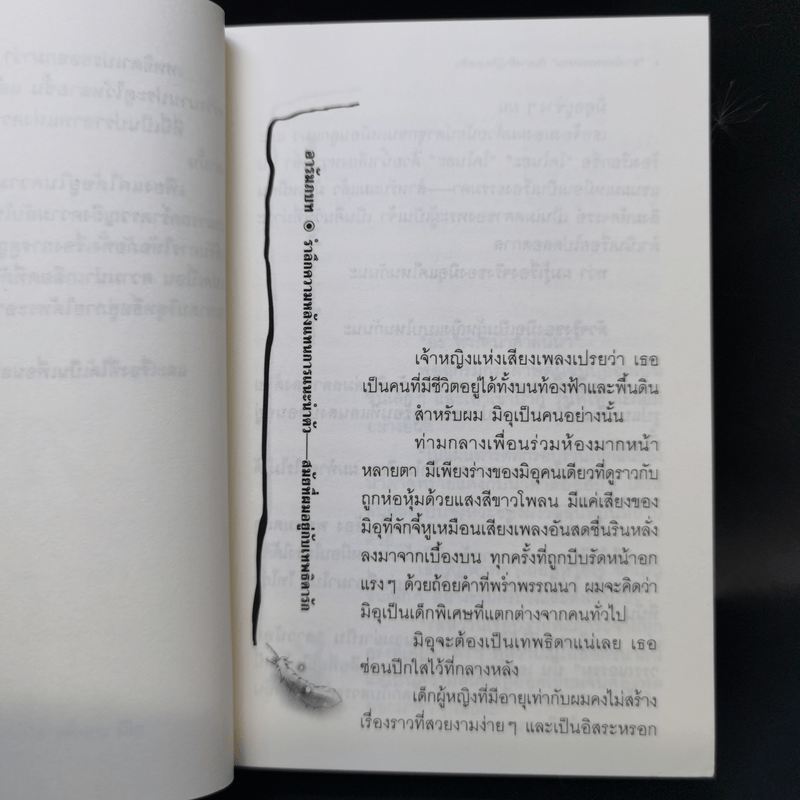 อารัมภบท ๏ รำลึกความหลังแทนการแนะนำตัว——สมัยที่ผมอยู่กับเทพธิดารัก
เจ้าหญิงแห่งเสียงเพลงเปรยว่า เธอ
เป็นคนที่มีชีวิตอยู่ได้ทั้งบนท้องฟ้าและพื้นดิน
สำหรับผม มิอุเป็นคนอย่างนั้น
ท่ามกลางเพื่อนร่วมห้องมากหน้า
หลายตา มีเพียงร่างของมิอุคนเดียวที่ดูราวกับ
ถูกห่อหุ้มด้วยแสงสีขาวโพลน มีแค่เสียงของ
มิอุที่จักจี้หูเหมือนเสียงเพลงอันสดชื่นรินหลั่ง
ลงมาจากเบื้องบน ทุกครั้งที่ถูกบีบรัดหน้าอก
แรงๆ ด้วยถ้อยคำที่พร่ำพรรณนา ผมจะคิดว่า
มิอุเป็นเด็กพิเศษที่แตกต่างจากคนทั่วไป
มิอุจะต้องเป็นเทพธิดาแน่เลย เธอ
ซ่อนปีกใสไว้ที่กลางหลัง
เด็กผู้หญิงที่มีอายุเท่ากับผมคงไม่สร้าง
เรื่องราวที่สวยงามง่ายๆ และเป็นอิสระหรอก